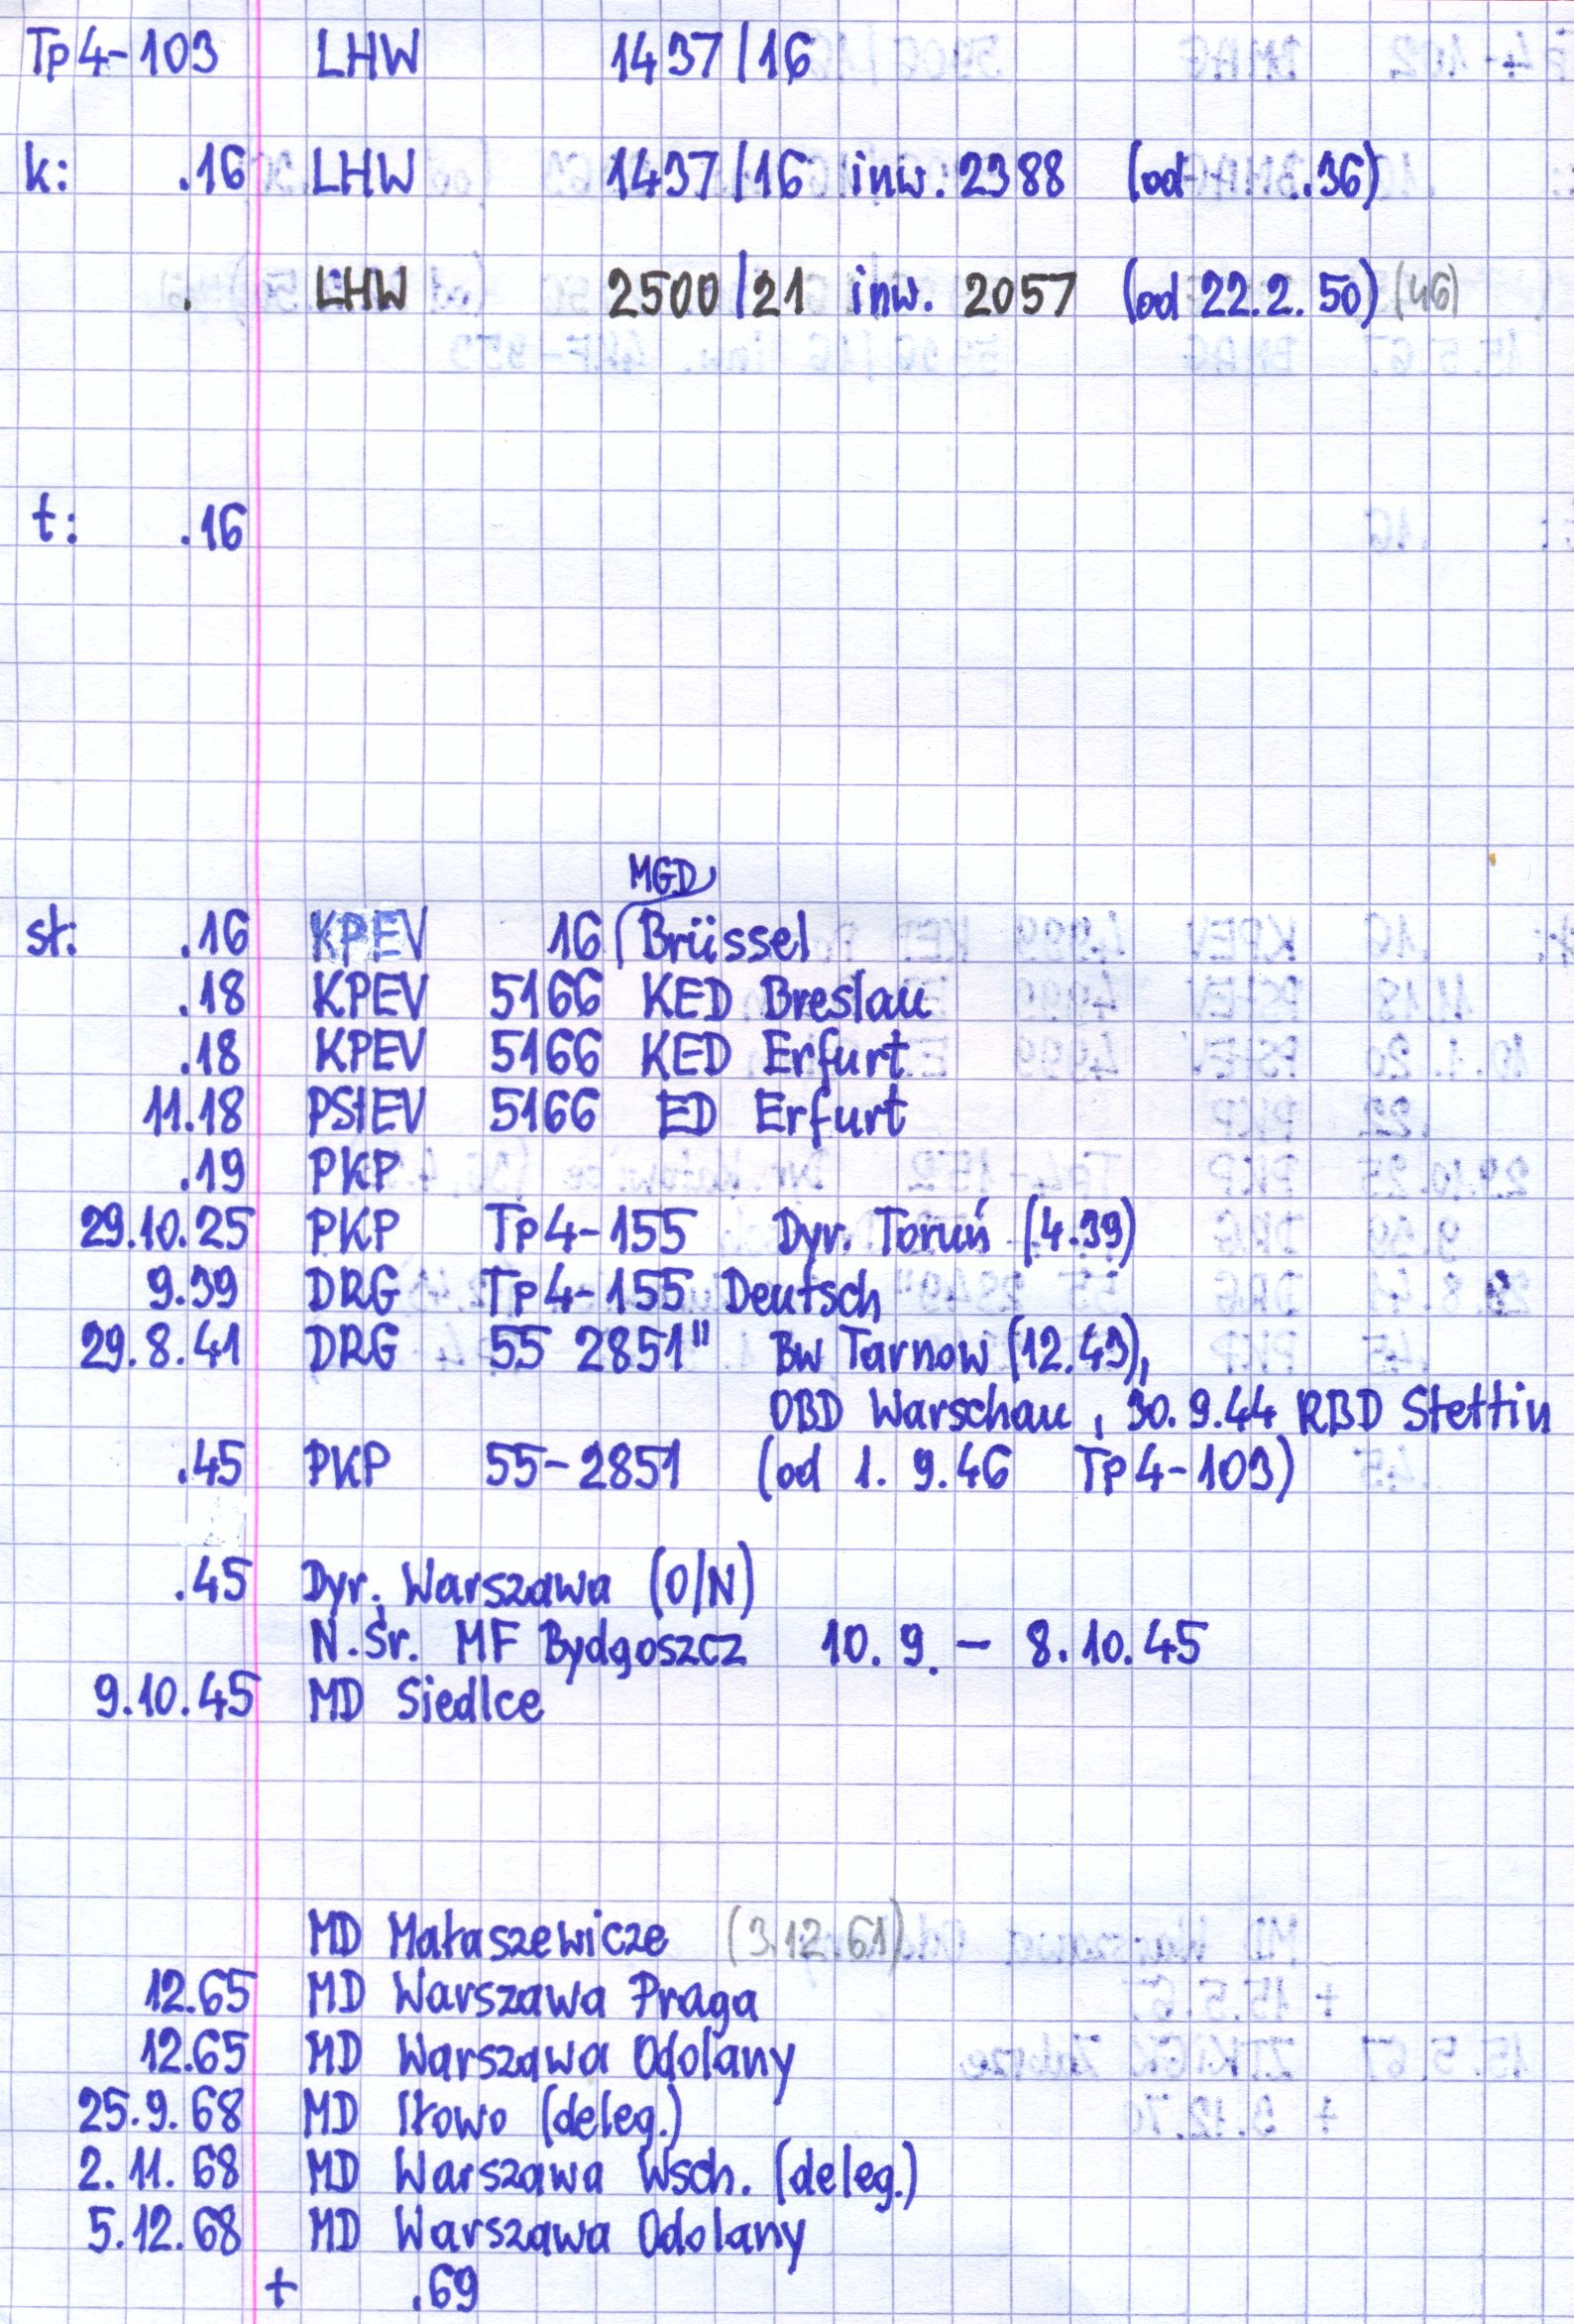 Tp4-103 LHW 1437/16
k: .16 LHW 1437/16 inw. 2388 (od .36)
. LHW 2500/21 inw. 2057 (od 22.2.50) (46)
t: .16
MGD
st: .16 KPEV 16 Brüssel
.18 KPEV 5166 KED Breslau
.18 KPEV 5166 KED Erfurt
11.18 PStEV 5166 ED Erfurt
.19 PKP
29.10.25 PKP Tp4-155 Dyr. Toruń (4.39)
9.39 DRG Tp4-155 Deutsch
29.8.41 DRG 55 2851" Bw Tarnow (12.43),
OBD Warschau, 30.9.44 RBD Stettin
.45 PKP 55-2851 (od 1.9.46 Tp4-103)
.45 Dyr. Warszawa (O/N)
N.Śr. MF Bydgoszcz 10.9. - 8.10.45
9.10.45 MD Siedlce
MD Małaszewicze (3.12.61)
12.65 MD Warszawa Praga
12.65 MD Warszawa Odolany
25.9.68 MD Iłowo (deleg.)
2.11.68 MD Warszawa Wsch. (deleg.)
5.12.68 MD Warszawa Odolany
+ .69